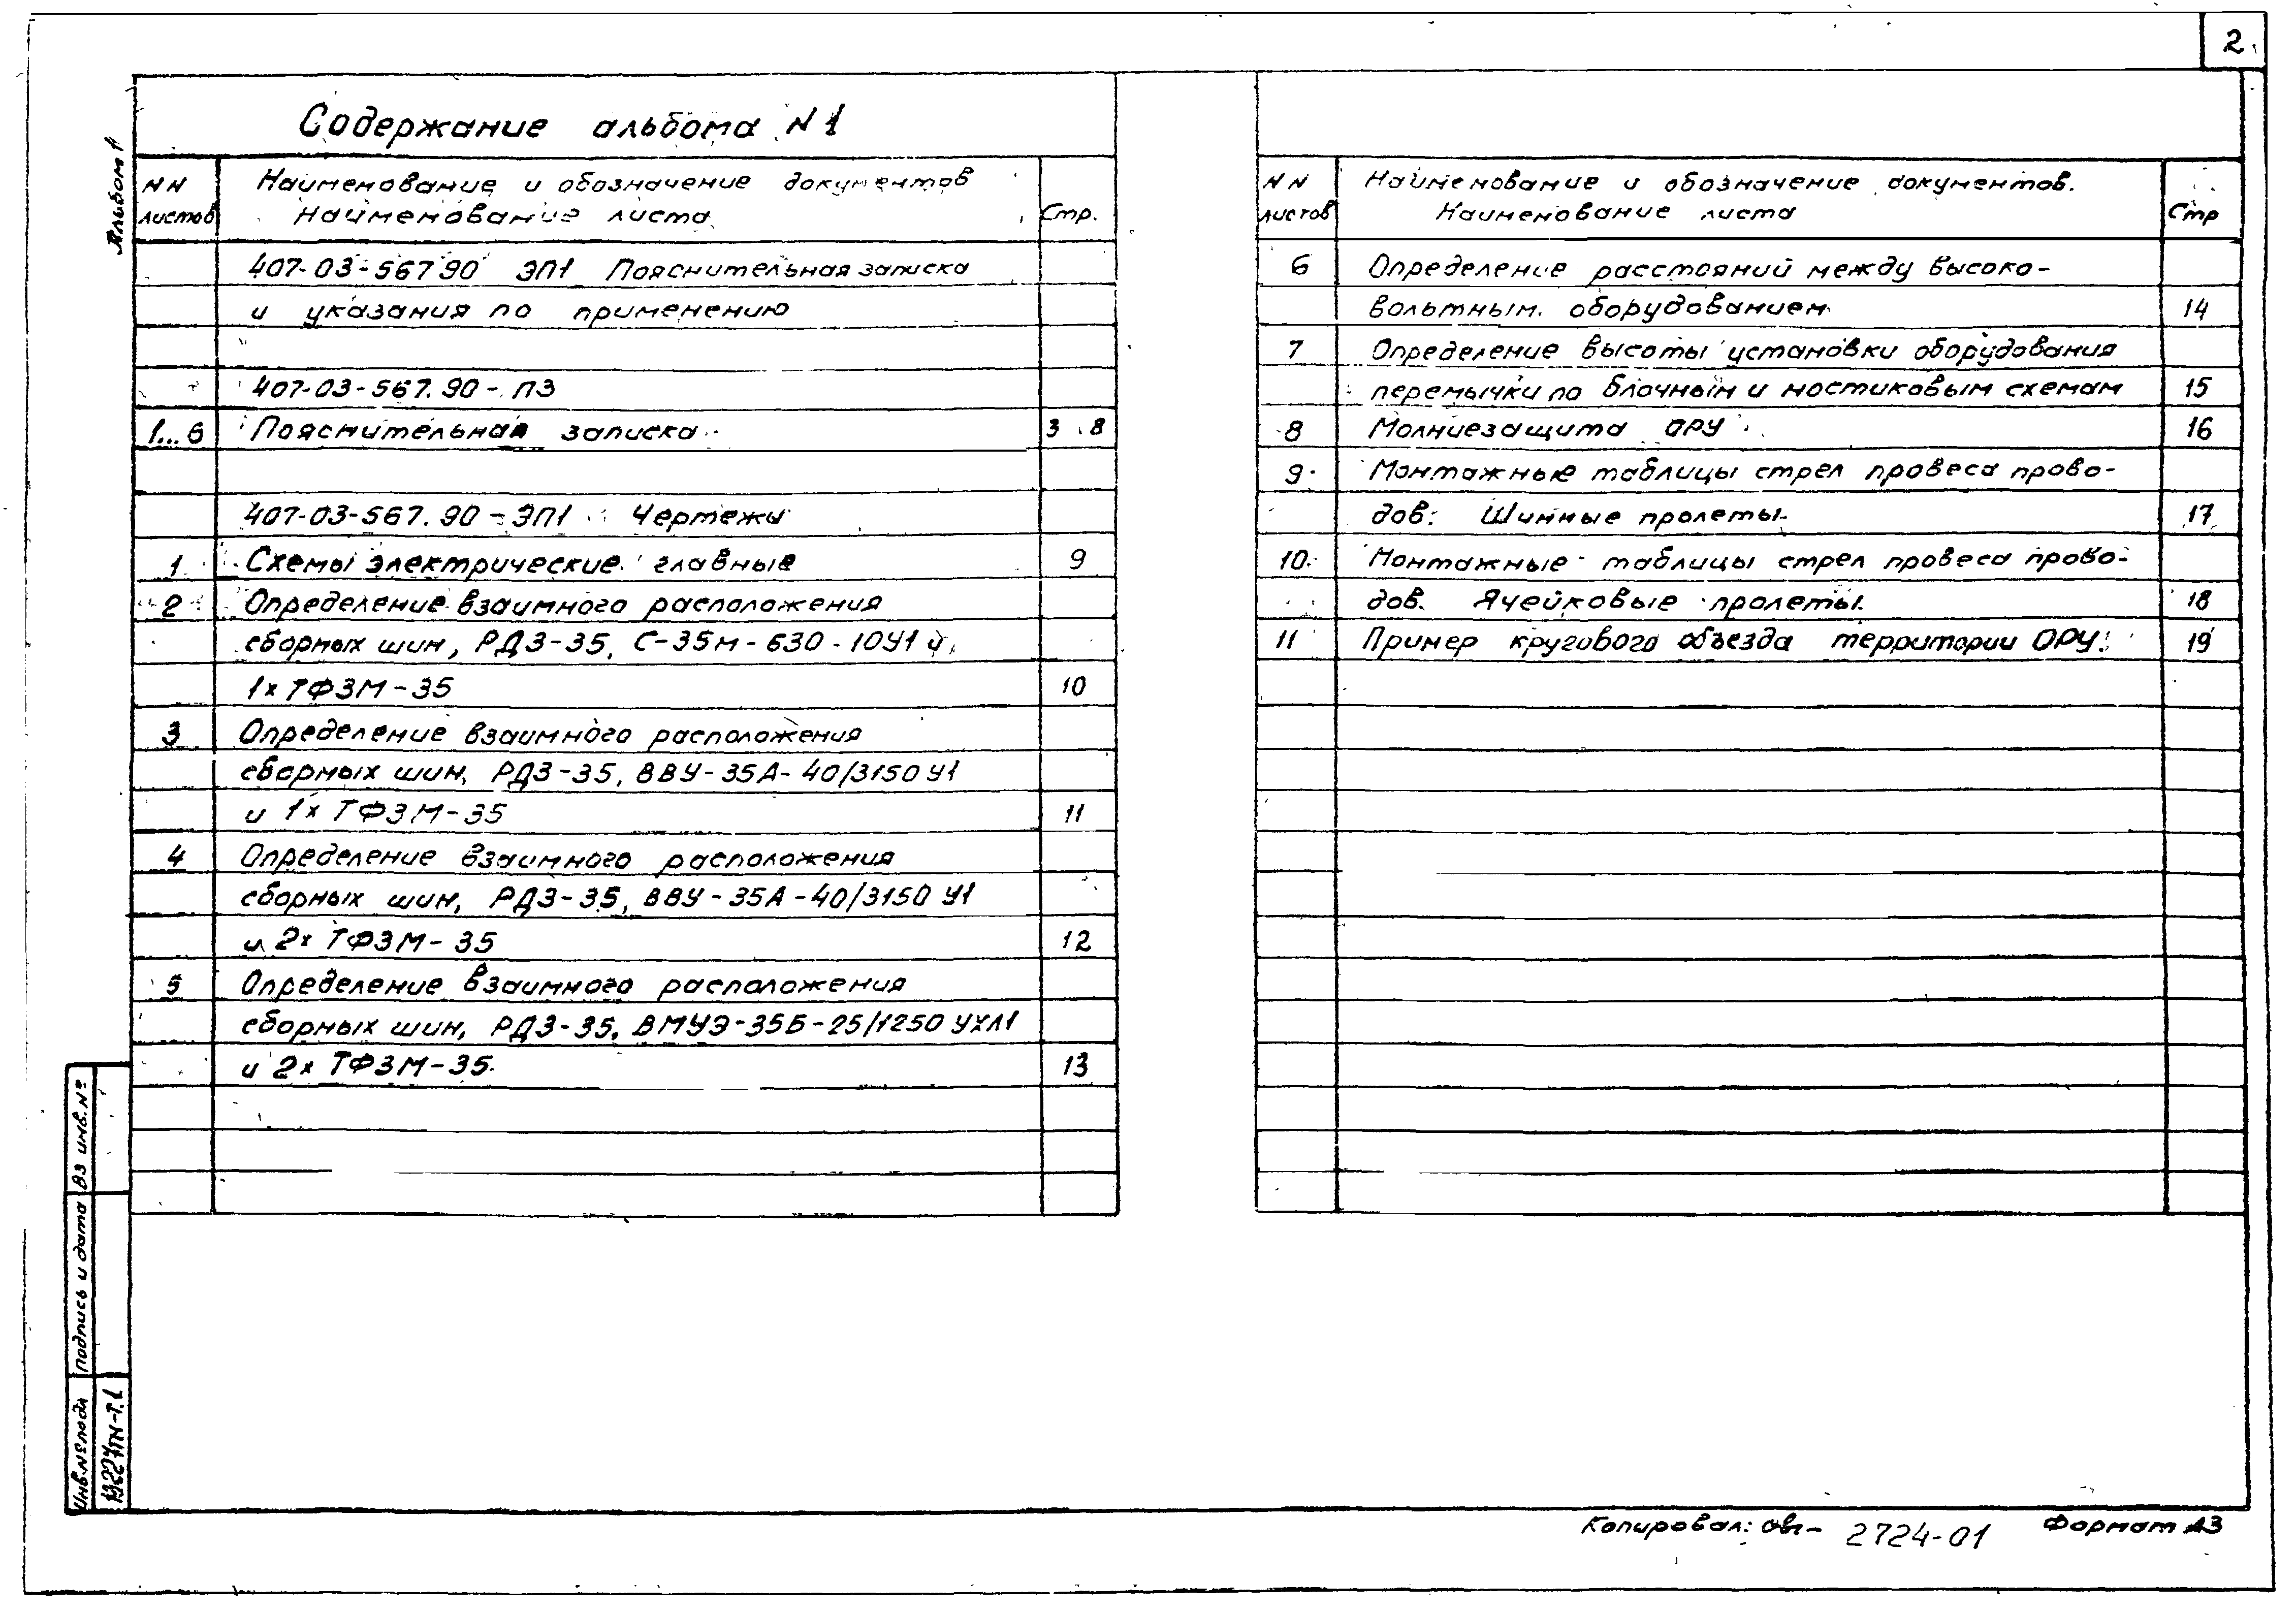 2
Альбом 1
Содержание альбома N 1
NN листов
Наименование и обозначение документов
Наименование листа
Стр.
407-03-567 90 ЭП1 Пояснительная записка
и указания по применению
407-03-567.90-ПЗ
1...6 Пояснительная записка 3 8
407-03-567.90-ЭП1 Чертежи
1 Схемы электрические главные 9
2 Определение взаимного расположения
сборных шин, РДЗ-35, С-35М-630-10У1 и
1х ТФЗМ-35 10
3 Определение взаимного расположения
сборных шин, РДЗ-35, ВВУ-35А-40/3150 У1
и 1х ТФЗМ-35 11
4 Определение взаимного расположения
сборных шин, РДЗ-35, ВВУ-35А-40/3150 У1
и 2х ТФЗМ-35 12
5 Определение взаимного расположения
сборных шин, РДЗ-35, ВМУЭ-35Б-25/1250 УХЛ1
и 2х ТФЗМ-35. 13
NN листов
Наименование и обозначение документов.
Наименование листа
Стр
6 Определение расстояний между высоко-
вольтным оборудованием 14
7 Определение высоты установки оборудования
перемычки по блочным и мостиковым схемам 15
8 Молниезащита ОРУ 16
9 Монтажные таблицы стрел провеса прово-
дов. Шинные пролеты. 17
10 Монтажные таблицы стрел провеса прово-
дов. Ячейковые пролеты. 18
11 Пример кругового объезда территории ОРУ. 19
Вз инв.№
Подпись и дата
Инв.№ подл
Копировал: 2724-01 Формат А3